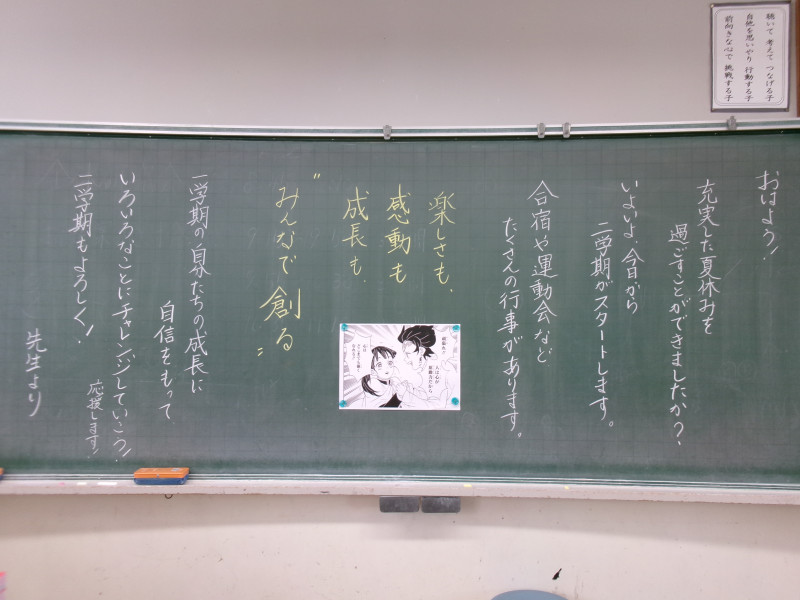 聴いて 考えて つなげる子
自他を思いやり 行動する子
前向きな心で 挑戦する子
おはよう!
充実した夏休みを
過ごすことができましたか?
いよいよ、今日から
二学期がスタートします。
合宿や運動会など
たくさんの行事があります。
楽しさも、
感動も
成長も、
"みんなで創る"
頑張れ!!
人は心が
原動力だから
心は
どこまでも強く
なれる!!
一学期の自分たちの成長に
自信をもって
いろいろなことにチャレンジしていこう!
応援します!
二学期もよろしく!
先生より